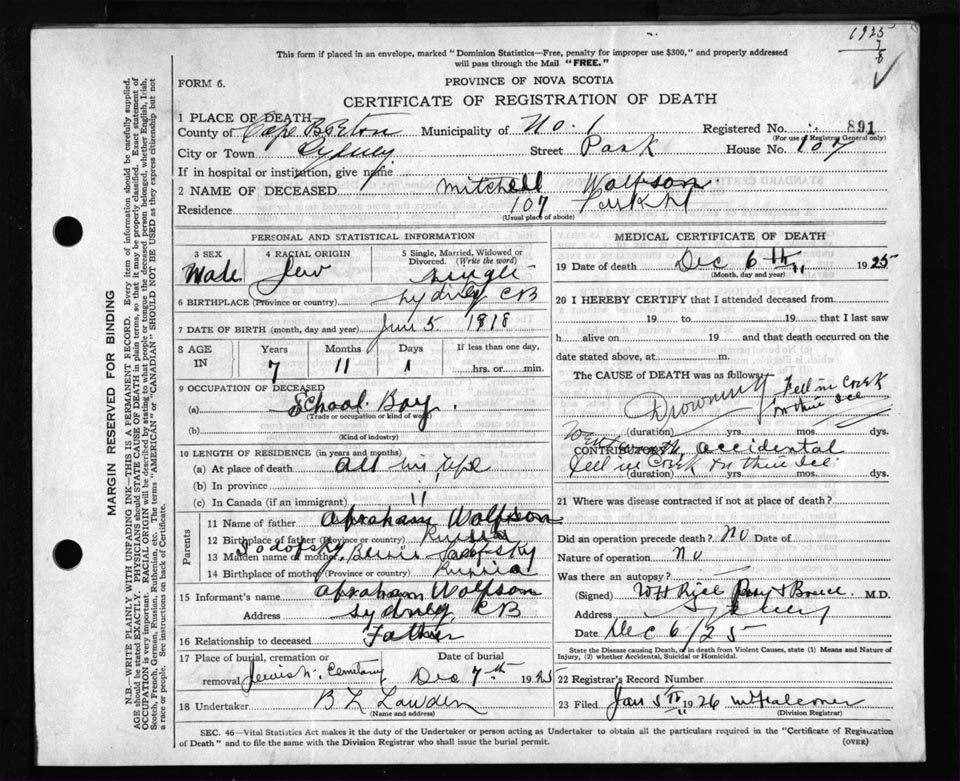 1925
7
8
This form if placed in an envelope, marked "Dominion Statistics—Free, penalty for improper use $300," and properly addressed
will pass through the Mail "FREE."
FORM 6.
PROVINCE OF NOVA SCOTIA
CERTIFICATE OF REGISTRATION OF DEATH
1 PLACE OF DEATH
County of Cape Breton Municipality of No. 1 Registered No. 891
(For use of Registrar General only)
City or Town Sydney Street Park House No. 107
If in hospital or institution, give name
2 NAME OF DECEASED Mitchell Wolfson
Residence 107 Park St
(Usual place of abode)
PERSONAL AND STATISTICAL INFORMATION
3 SEX Male
4 RACIAL ORIGIN Jew
5 Single, Married, Widowed or Divorced. (Write the word) Single
6 BIRTHPLACE (Province or country) Sydney CB
7 DATE OF BIRTH (month, day and year) Jan 5 1918
8 AGE IN
Years Months Days If less than one day,
7 11 1 hrs. or min.
9 OCCUPATION OF DECEASED
(a) School Boy
(Trade or occupation or kind of work)
(b)
(Kind of industry)
10 LENGTH OF RESIDENCE (in years and months)
(a) At place of death all his life
(b) In province
(c) In Canada (if an immigrant) "
Parents
11 Name of father Abraham Wolfson
12 Birthplace of father (Province or country) Russia
13 Maiden name of mother Bessie
14 Birthplace of mother (Province or country) Russia
15 Informant's name Abraham Wolfson
Address Sydney CB
16 Relationship to deceased Father
17 Place of burial, cremation or removal Jewish Cemetary
Date of burial Dec 7th 1925
18 Undertaker B L Lawden
(Name and address)
MEDICAL CERTIFICATE OF DEATH
19 Date of death Dec 6th 1925
(Month, day and year)
20 I HEREBY CERTIFY that I attended deceased from
19 to 19 that I last saw
h alive on 19 and that death occurred on the
date stated above, at m.
The CAUSE of DEATH was as follows:
Drowning Fell in Creek
on thin Ice
(duration) yrs. mos. dys.
CONTRIBUTORY accidental
Fell in Creek on thin Ice
(duration) yrs. mos. dys.
21 Where was disease contracted if not at place of death?
Did an operation precede death? No Date of
Nature of operation No
Was there an autopsy?
(Signed) M.D.
Address Sydney
Date Dec 6/25
State the Disease causing Death, or in death from Violent Causes, state (1) Means and Nature of
Injury, (2) whether Accidental, Suicidal or Homicidal.
22 Registrar's Record Number
23 Filed Jan 5th 1926
(Division Registrar)
SEC. 46—Vital Statistics Act makes it the duty of the Undertaker or person acting as Undertaker to obtain all the particulars required in the "Certificate of Registration
of Death" and to file the same with the Division Registrar who shall issue the burial permit.
(OVER)
MARGIN RESERVED FOR BINDING
N.B.—WRITE PLAINLY WITH UNFADING INK—THIS IS A PERMANENT RECORD. Every item of information should be carefully supplied.
AGE should be stated EXACTLY. PHYSICIANS should STATE CAUSE OF DEATH in plain terms, so that it may be properly classified. Exact statement of
OCCUPATION is very important. RACIAL ORIGIN will be described by stating to what people or tongue the deceased person belonged, whether English, Irish,
Scotch, French, German, Russian, Ruthenian, etc. The terms "AMERICAN" or "CANADIAN" SHOULD NOT BE USED as they express citizenship but not
a race or people. See instructions on back of Certificate.